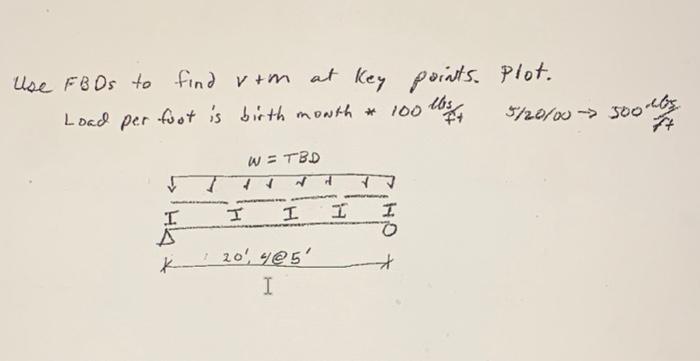 Use FBDs to find v+m at key points. Plot.
Load per foot is birth month * 100 lbs/ft 5/20/00 → 500 lbs/ft
W = TBD
I I I I I
20', 4@5'
I